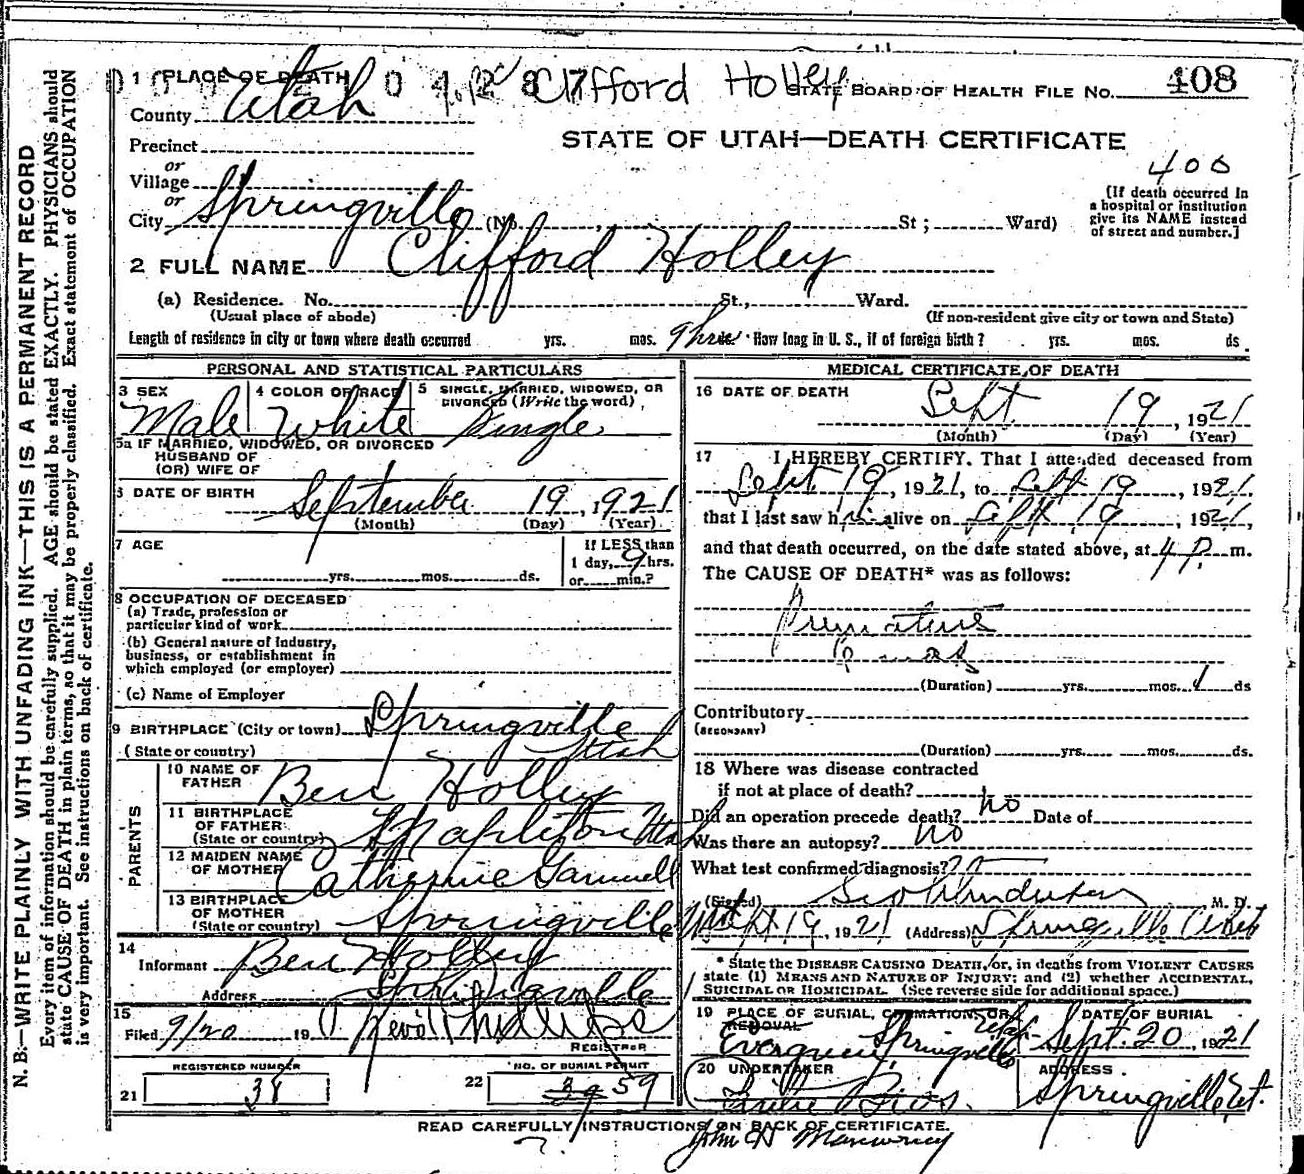 N. B.—WRITE PLAINLY WITH UNFADING INK—THIS IS A PERMANENT RECORD
Every item of information should be carefully supplied. AGE should be stated EXACTLY. PHYSICIANS should
state CAUSE OF DEATH in plain terms, so that it may be properly classified. Exact statement of OCCUPATION
is very important. See instructions on back of certificate.
Clifford Holley
1 PLACE OF DEATH
STATE BOARD OF HEALTH FILE No. 408
County Utah
STATE OF UTAH—DEATH CERTIFICATE
Precinct
400
or
Village
or
City Springville (No. St; Ward)
(If death occurred in
a hospital or institution
give its NAME instead
of street and number.]
2 FULL NAME Clifford Holley
(a) Residence. No. St., Ward.
(Usual place of abode) (If non-resident give city or town and State)
Length of residence in city or town where death occurred yrs. mos. How long in U. S., if of foreign birth? yrs. mos. ds.
PERSONAL AND STATISTICAL PARTICULARS
3 SEX Male
4 COLOR OR RACE White
5 SINGLE, MARRIED, WIDOWED, OR
DIVORCED (Write the word) Single
5a IF MARRIED, WIDOWED, OR DIVORCED
HUSBAND OF
(OR) WIFE OF
DATE OF BIRTH September 19, 1921
(Month) (Day) (Year)
7 AGE yrs. mos. ds.
If LESS than
1 day, 9 hrs.
or min.?
8 OCCUPATION OF DECEASED
(a) Trade, profession or
particular kind of work
(b) General nature of industry,
business, or establishment in
which employed (or employer)
(c) Name of Employer
9 BIRTHPLACE (City or town) Springville
(State or country) Utah
PARENTS
10 NAME OF
FATHER Ben Holley
11 BIRTHPLACE
OF FATHER
(State or country) Mapleton Utah
12 MAIDEN NAME
OF MOTHER Catherine
13 BIRTHPLACE
OF MOTHER
(State or country) Springville
14
Informant Ben Holley
Address Springville
15
Filed 9/20 19 Phillips
REGISTRAR
REGISTERED NUMBER
21 38
NO. OF BURIAL PERMIT
22 59
MEDICAL CERTIFICATE OF DEATH
16 DATE OF DEATH Sept. 19, 1921
(Month) (Day) (Year)
17 I HEREBY CERTIFY. That I attended deceased from
Sept 19, 1921, to Sept 19, 1921,
that I last saw him alive on Sept 19, 1921,
and that death occurred, on the date stated above, at 4 P. m.
The CAUSE OF DEATH* was as follows:
Premature
(Duration) yrs. mos. 1 ds
Contributory
(SECONDARY)
(Duration) yrs. mos. ds.
18 Where was disease contracted
if not at place of death?
Did an operation precede death? no Date of
Was there an autopsy? no
What test confirmed diagnosis?
(Signed) M. D.
Sept 19, 1921 (Address) Springville Utah
* State the DISEASE CAUSING DEATH, or, in deaths from VIOLENT CAUSES
state (1) MEANS AND NATURE OF INJURY; and (2) whether ACCIDENTAL,
SUICIDAL OR HOMICIDAL. (See reverse side for additional space.)
19 PLACE OF BURIAL, CREMATION, OR
REMOVAL
Evergreen, Springville Utah
DATE OF BURIAL
Sept. 20, 1921
20 UNDERTAKER
ADDRESS
Springville, Ut.
READ CAREFULLY INSTRUCTIONS ON BACK OF CERTIFICATE.